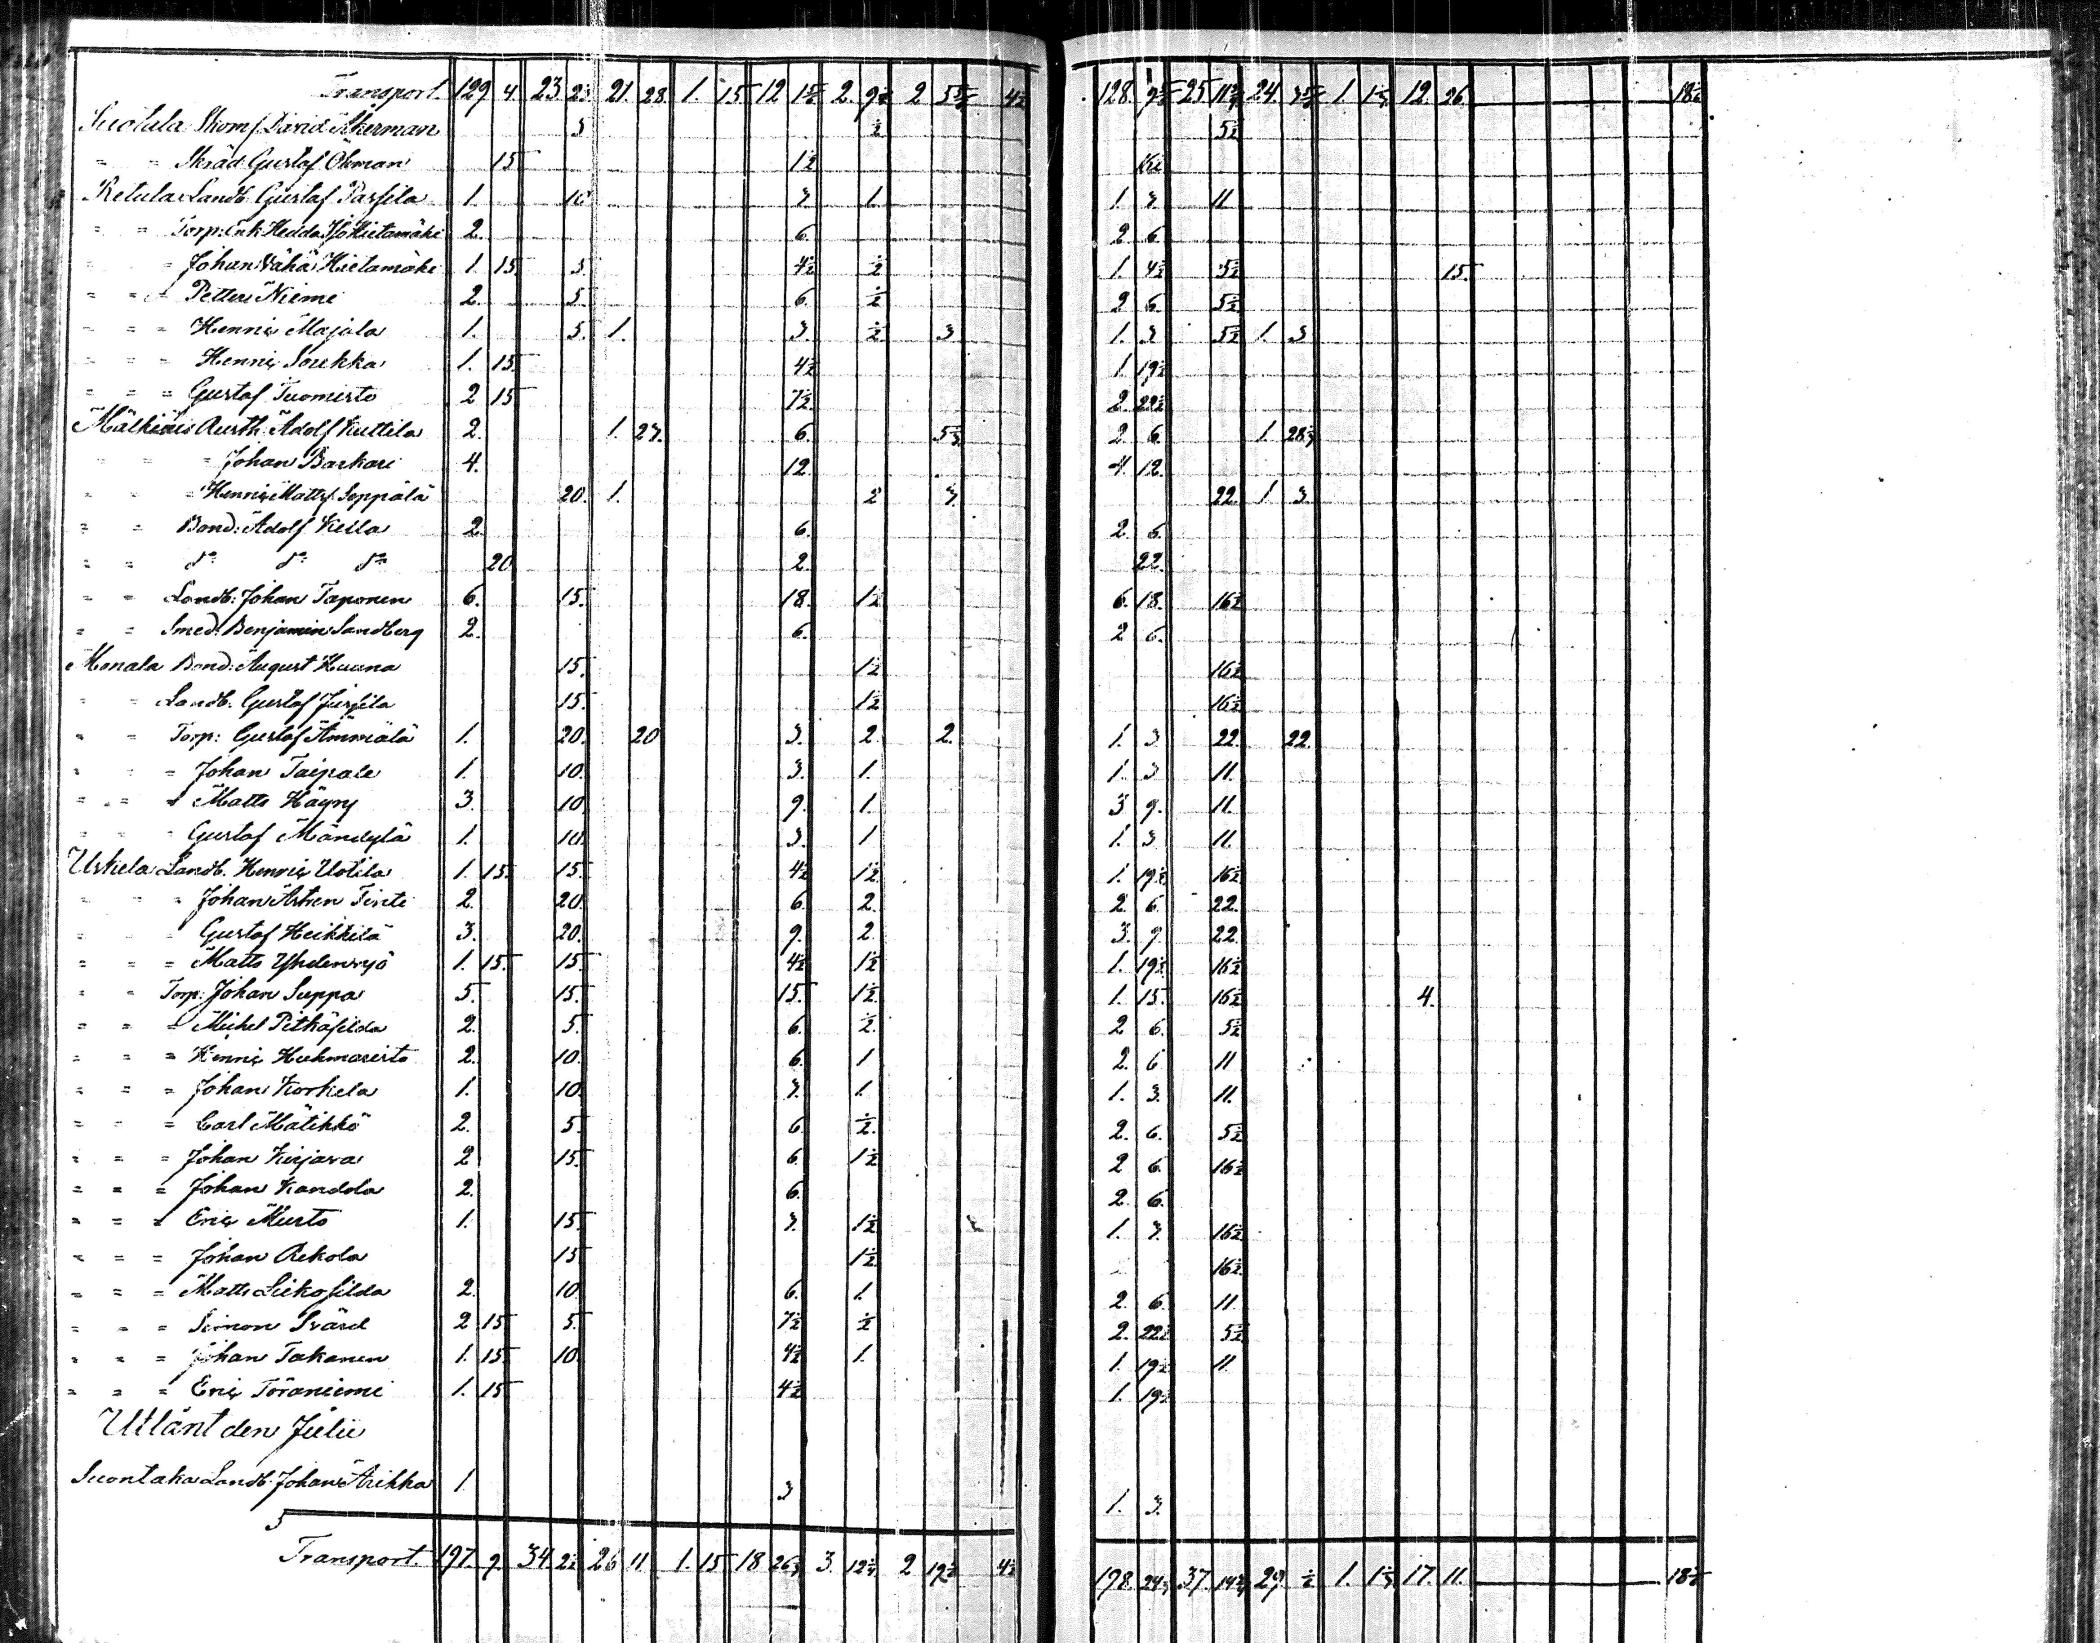 Transport. 129 4. 23 2½ 21. 28. 1. 15 12 1½ 2. 9½ 2 5½ 4½ 128. 9½ 25 11½ 24. 3½ 1. 1½ 12. 26. 18½
Suotala Skom: David Åkerman 5 ½ 5½
" " Skräd: Gustaf Öhman 15 1½ 16½
Retula Landb. Gustaf Parsila 1. 10. 3. 1. 1. 3. 11
" " Torp: Enk: Hedda Iso Hietamäki 2. 6. 2 6
" Johan Vähä Hietamäki 1. 15 5. 4½ ½ 1. 4½ 5½ 15.
" " " Petter Niemi 2. 5. 6. ½ 2 6. 5½
" " " Henric Majala 1. 5. 1. 3. ½ 3 1. 3 5½ 1. 3
" " " Henric Soukka 1. 15. 4½ 1 19½
" " " Gustaf Tuomisto 2 15 7½ 2 22½
Mälkiäis Rusth: Adolf Kuttila 2. 1. 27. 6. 5½ 2 6. 1. 28½
" " " Johan Barkari 4. 12. 4. 12.
" " " Henric Matts: Seppälä 20. 1. 2 3. 22. 1 3.
" " Bond: Adolf Kella 2. 6. 2. 6.
" " d:o d:o d:o 20. 2. 22.
" " Landb: Johan Taponen 6. 15. 18. 1½ 6. 18. 16½
" " Smed. Benjamin Sandberg 2. 6. 2 6.
Monala Bond: August Huuna 15. 1½ 16½
" " Landb. Gustaf Jussila 15. 1½ 16½
" " Torp: Gustaf Ämmälä 1. 20. 20 3. 2. 2. 1. 3 22. 22.
" " " Johan Taipale 1. 10. 3. 1. 1. 3 11.
" " " Matts Häyry 3. 10 9. 1. 3 9. 11.
" " " Gustaf Mändylä 1. 10. 3. 1 1. 3 11.
Uskela Landb. Henric Uotila 1. 15. 15. 4½ 1½ 1. 19½ 16½
" " " Johan Tinti 2. 20. 6. 2. 2. 6. 22.
" " " Gustaf Heikkilä 3. 20. 9. 2. 3. 9. 22.
" " " Matts Yhdensyö 1. 15. 15. 4½ 1½ 1. 19½ 16½
" " Torp: Johan Suppa 5. 15. 15. 1½ 1. 15. 16½ 4.
" " " Michel Pitkäsilda 2. 5. 6. ½ 2 6. 5½
" " " Henric Huhmaristo 2. 10. 6. 1 2. 6 11
" " " Johan Korkela 1. 10. 3. 1. 1. 3. 11.
" " " Carl Mätikkö 2. 5. 6 ½ 2. 6. 5½
" " " Johan Kirjava 2 15. 6. 1½ 2 6 16½
" " " Johan Kandola 2. 6. 2. 6.
" " " Eric Murto 1. 15. 3. 1½ 1. 3. 16½
" " " Johan Rekola 15 1½ 16½
" " " Matts Liekosilda 2. 10. 6. 1. 2. 6. 11.
" " " Simon Svärd 2 15 5. 7½ ½ 2. 22½ 5½
" " " Johan Takanen 1. 15. 10. 4½ 1. 1. 19½ 11.
" " " Eric Töräniemi 1. 15 4½ 1. 19½
Utlänt den Julii
Suontaka Landb. Johan Arikka 1. 3 1. 3.
Transport. 197. 9. 34. 2½ 26 11 1. 15 18 26½ 3. 12½ 2 12½ 4½ 198. 24½ 37. 14½ 29. ½ 1. 1½ 17. 11. 18½